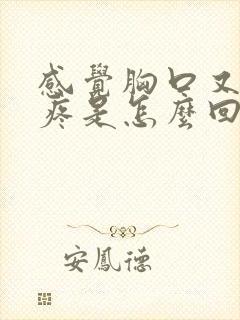 感覺胸口又
疼是怎麼回
安鳳德